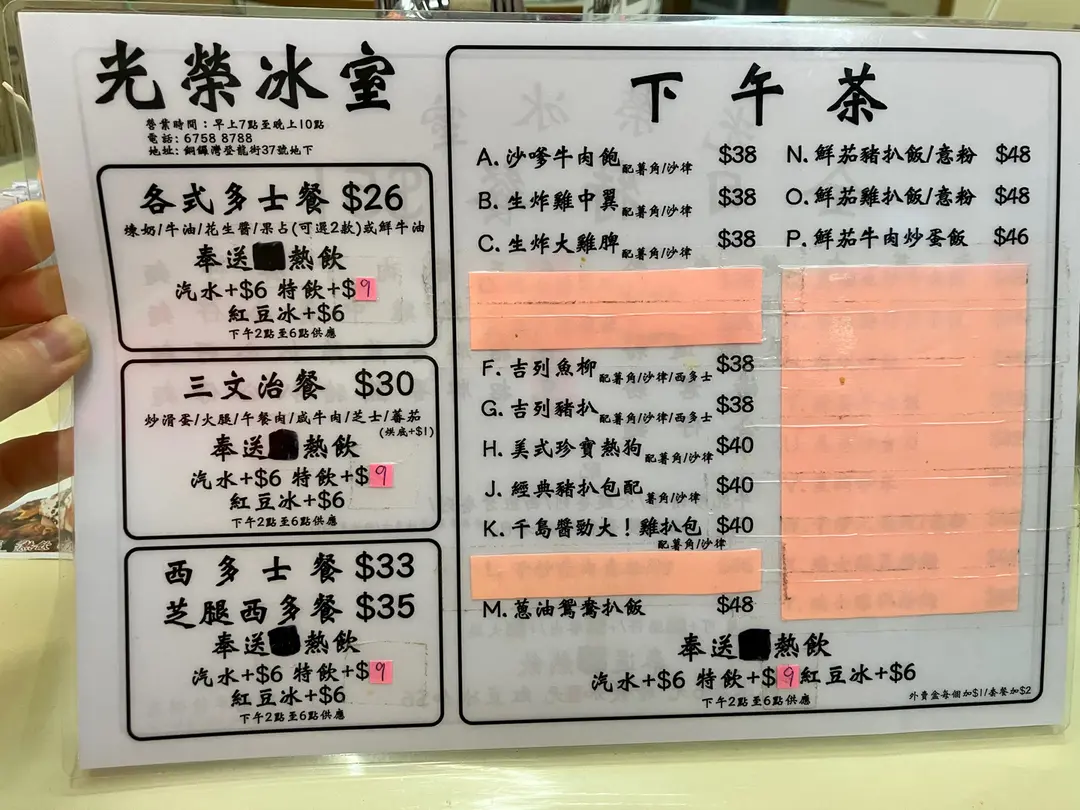 光榮冰室
營業時間：早上7點至晚上10點
電話: 6758 8788
地址: 銅鑼灣登龍街37號地下
各式多士餐 $26
煉奶/牛油/花生醬/果占(可選2款)或鮮牛油
奉送熱飲
汽水+$6 特飲+$9
紅豆冰+$6
下午2點至6點供應
三文治餐 $30
炒滑蛋/火腿/午餐肉/咸牛肉/芝士/蕃茄
(烘底+$1)
奉送熱飲
汽水+$6 特飲+$9
紅豆冰+$6
下午2點至6點供應
西多士餐 $33
芝腿西多餐 $35
奉送熱飲
汽水+$6 特飲+$9
紅豆冰+$6
下午2點至6點供應
下午茶
A. 沙嗲牛肉飽配薯角/沙律 $38
B. 生炸雞中翼配薯角/沙律 $38
C. 生炸大雞脾配薯角/沙律 $38
F. 吉列魚柳配薯角/沙律/西多士 $38
G. 吉列豬扒配薯角/沙律/西多士 $38
H. 美式珍寶熱狗配薯角/沙律 $40
J. 經典豬扒包配薯角/沙律 $40
K. 千島醬勁大！雞扒包配薯角/沙律 $40
M. 蔥油鴛鴦扒飯 $48
N. 鮮茄豬扒飯/意粉 $48
O. 鮮茄雞扒飯/意粉 $48
P. 鮮茄牛肉炒蛋飯 $46
奉送熱飲
汽水+$6 特飲+$9 紅豆冰+$6
下午2點至6點供應
外賣盒每個加$1/套餐加$2